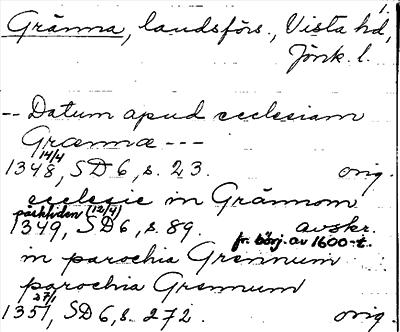 1.
Gränna, landsförs., Vista hd,
Jönk. l.
-- Datum apud ecclesiam
Grænna ---
14/4
1348, SD 6, s. 23. orig.
ecclesie in Grännom
påsktiden (12/4)
1349, SD 6, s. 89. avskr.
fr. börj. av 1600-t.
in parochia Grennum
parochia Grennum
27/1
1351, SD 6, s. 272. orig.